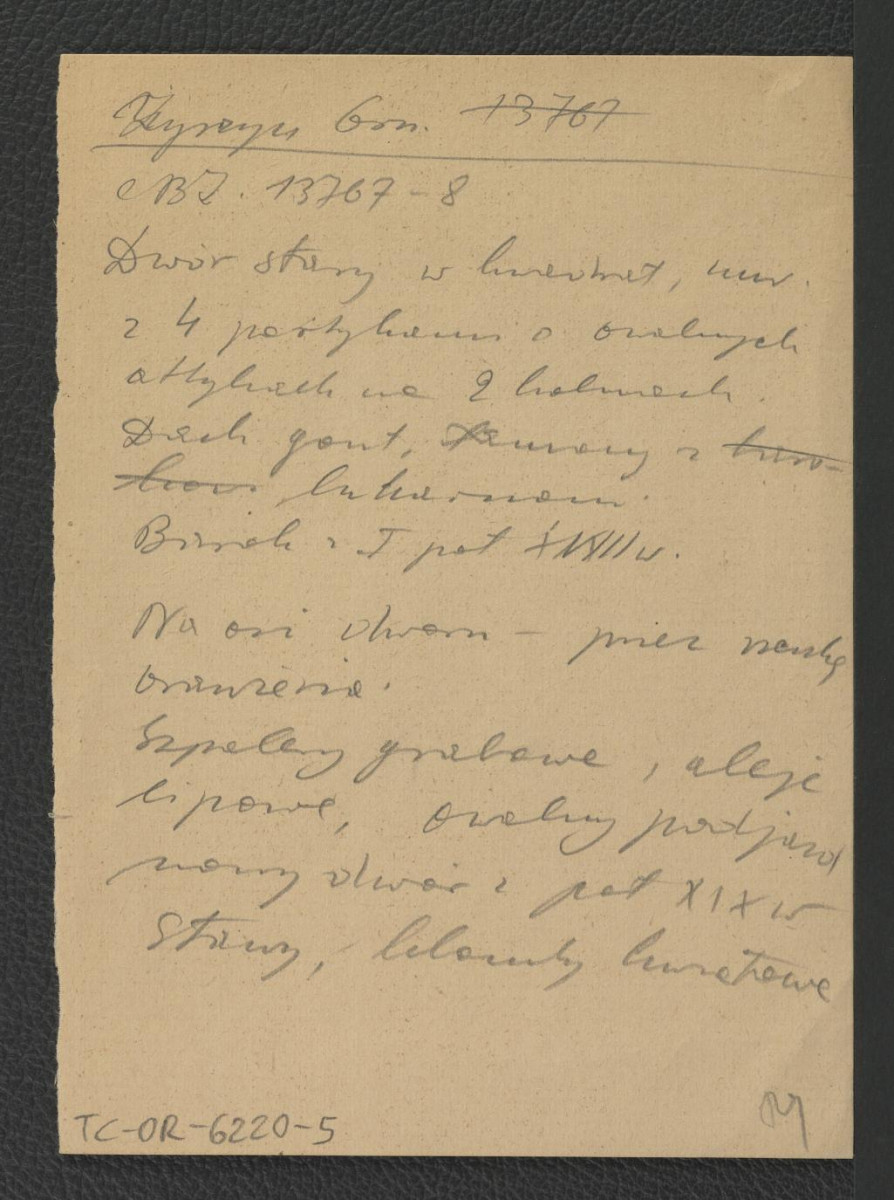 Żyrzyn Gm. 13767
NBZ. 13767-8
Dwór stary w kwadrat, mur.
z 4 portykami o owalnych
attykach na 2 kolumnach.
Dach gont, łamany z
lukarnami.
Barok z I poł XVIII w.
Na osi dworu — przez rzekę
Szpalery grabowe, aleje
lipowe, owalny podjazd
nowy dwór z poł XIX w
Stawy, klomby kwiatowe
TC-OR-6220-5